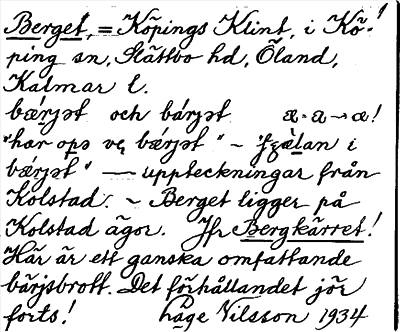 Berget, = Köpings Klint, i Kö-!
ping sn, Slättbo hd, Öland,
Kalmar l.
bærjət och bárjət æ·a→æ!
"har ops ve bærjət" ~ "fjælan i
bærjət" — uppteckningar från
Kolstad. ~ Berget ligger på
Kolstad ägor. Jfr Bergkärret!
Här är ett ganska omfattande
bärjsbrott. Det förhållandet jör
forts! håge Nilsson 1934